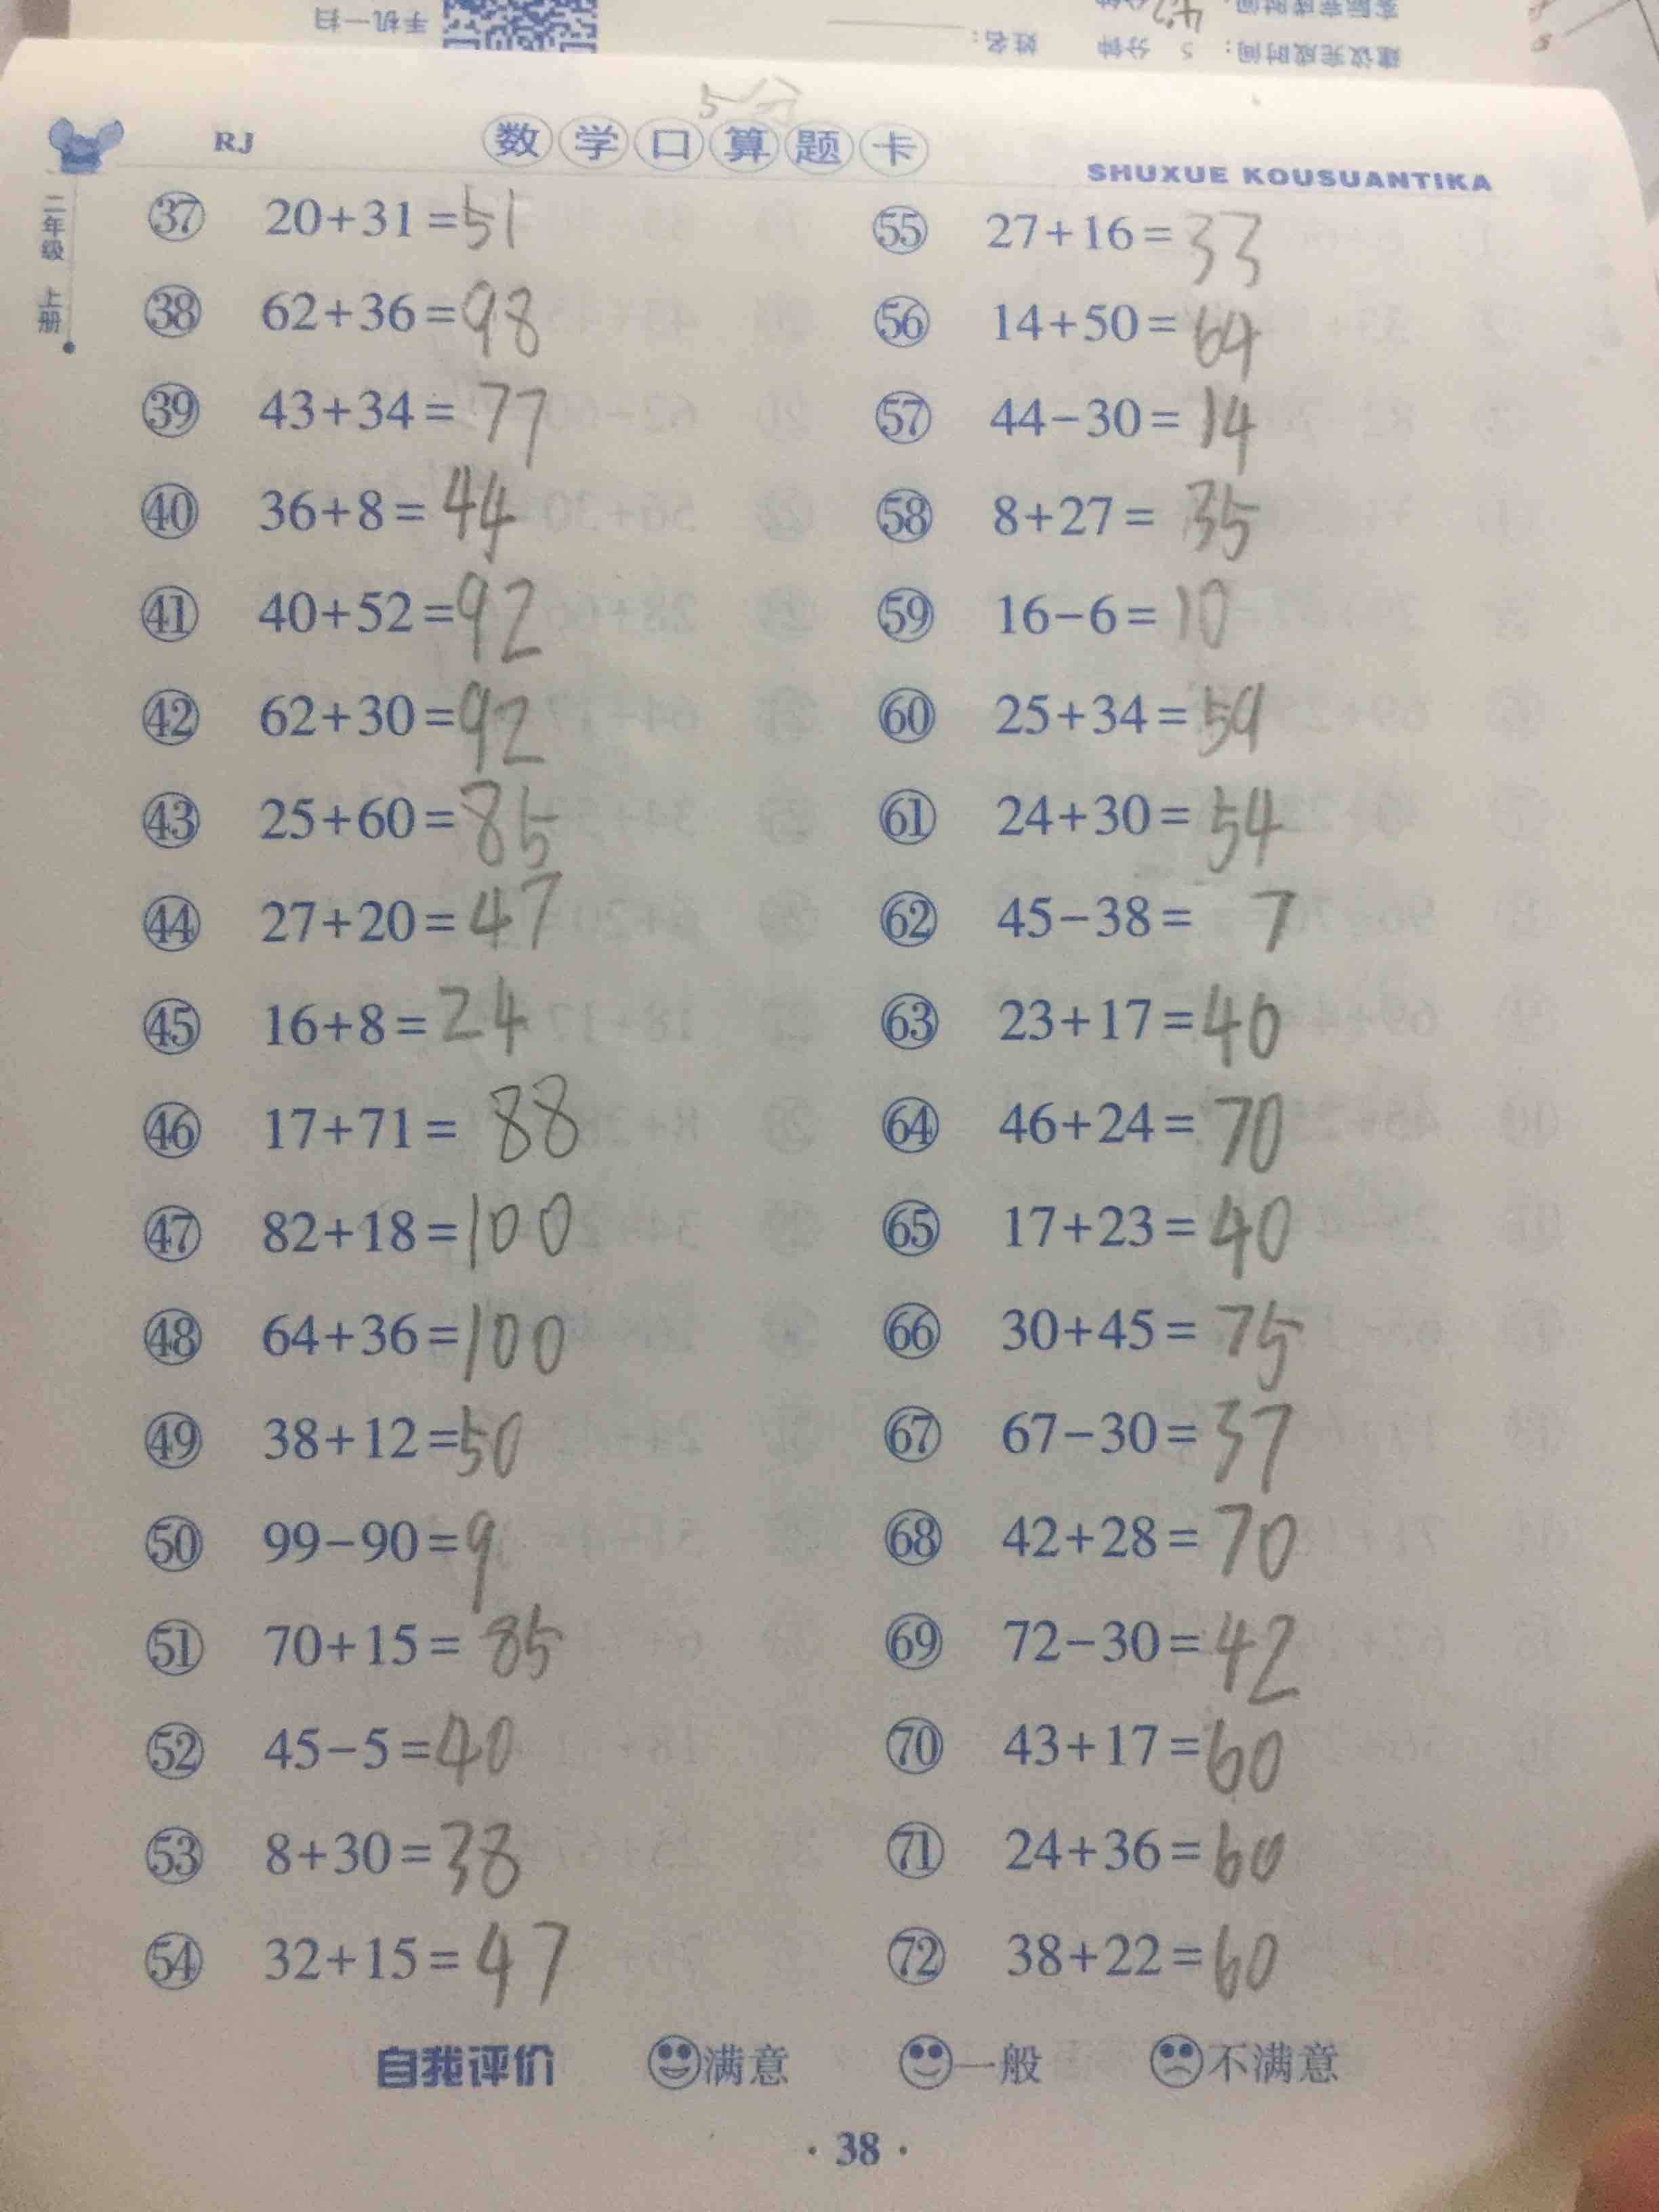 手机一扫
姓名：
建议完成时间： 5 分钟
实际完成时间：
5分
RJ
数学口算题卡
SHUXUE KOUSUANTIKA
二年级 上册
㊲ 20+31=51
㊳ 62+36=98
㊴ 43+34=77
㊵ 36+8=44
㊶ 40+52=92
㊷ 62+30=92
㊸ 25+60=85
㊹ 27+20=47
㊺ 16+8=24
㊻ 17+71=88
㊼ 82+18=100
㊽ 64+36=100
㊾ 38+12=50
㊿ 99-90=9
51 70+15=85
52 45-5=40
53 8+30=38
54 32+15=47
55 27+16=33
56 14+50=64
57 44-30=14
58 8+27=35
59 16-6=10
60 25+34=59
61 24+30=54
62 45-38=7
63 23+17=40
64 46+24=70
65 17+23=40
66 30+45=75
67 67-30=37
68 42+28=70
69 72-30=42
70 43+17=60
71 24+36=60
72 38+22=60
自我评价 满意 一般 不满意
· 38 ·